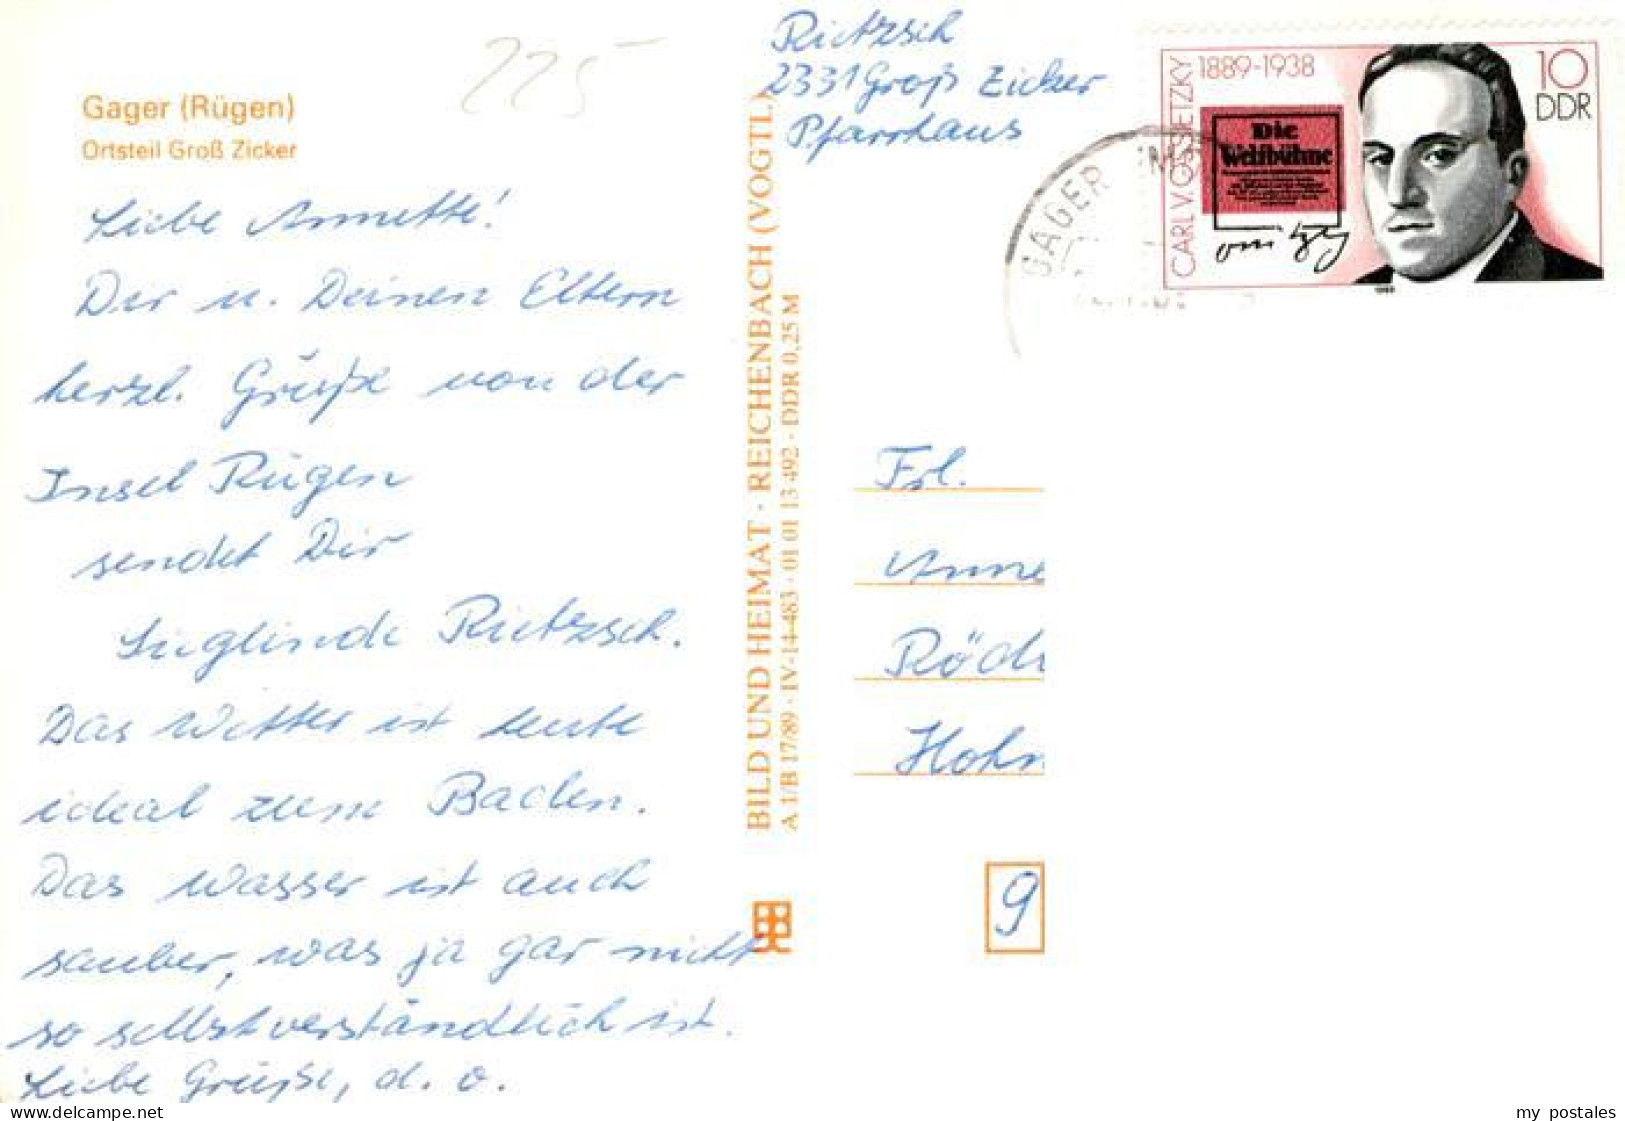 Gager (Rügen)
Ortsteil Groß Zicker
225
Liebe Annette!
Dir u. Deinen Eltern
herzl. Grüße von der
Insel Rügen
sendet Dir
Sieglinde Rietzsch.
Das Wetter ist heute
ideal zum Baden.
Das Wasser ist auch
sauber, was ja gar nicht
so selbstverständlich ist.
Liebe Grüße, d. o.
BILD UND HEIMAT · REICHENBACH (VOGTL)
A 1/B 17/89 · IV-14-483 · 01 01 13 492 · DDR 0,25 M
Rietzsch
2331 Groß Zicker
Pfarrhaus
GAGER
CARL V. OSSIETZKY
1889-1938
Die
Weltbühne
10
DDR
Frl.
Anne
Röd
Hohn
9
www.delcampe.net
my_postales